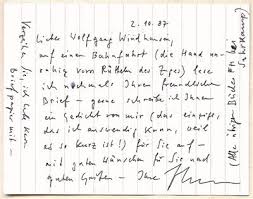 2.10.87
Lieber Wolfgang Windhausen,
auf einer Bahnfahrt (die Hand un-
ruhig vom Rütteln des Zuges) lese
ich nochmals Ihren freundlichen
Brief - gerne schreibe ich Ihnen
ein Gedicht von mir (das einzige,
das ich auswendig kann, weil
es so kurz ist!) für Sie auf -
mit guten Wünschen für Sie und
guten Grüßen - Ihre
Verzeihen Sie, ich habe kein
Briefpapier mit -
(Alle übrigen Bücher bei
Suhrkamp)